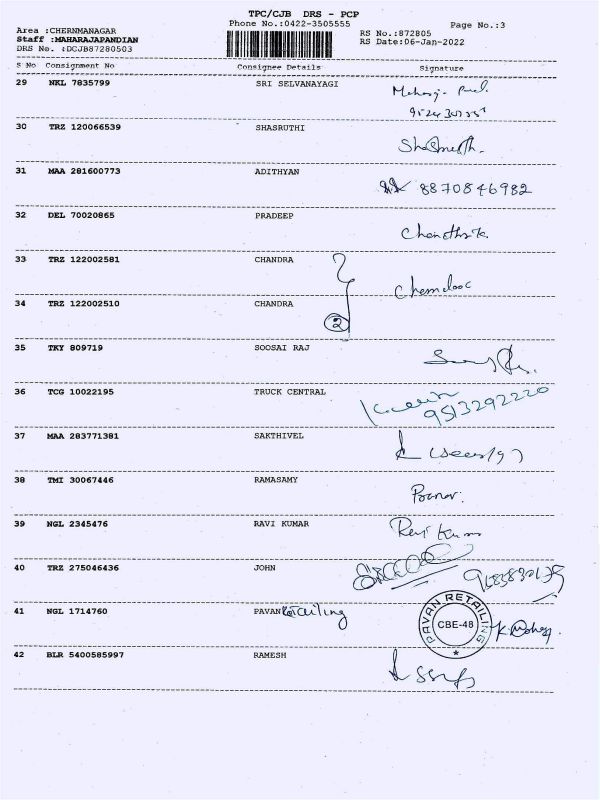 TPC/CJB DRS - PCP
Phone No.:0422-3505555
Page No.:3
Area :CHERNMANAGAR
Staff :MAHARAJAPANDIAN
DRS No. :DCJB87280503
RS No.:872805
RS Date:06-Jan-2022
S No Consignment No Consignee Details Signature
29 NKL 7835799 SRI SELVANAYAGI
30 TRZ 120066539 SHASRUTHI
31 MAA 281600773 ADITHYAN 8870846982
32 DEL 70020865 PRADEEP
33 TRZ 122002581 CHANDRA
34 TRZ 122002510 CHANDRA
2
35 TKY 809719 SOOSAI RAJ
36 TCG 10022195 TRUCK CENTRAL 9513292220
37 MAA 283771381 SAKTHIVEL
38 TMI 30067446 RAMASAMY
39 NGL 2345476 RAVI KUMAR Ravi Kumar
40 TRZ 275046436 JOHN
41 NGL 1714760 PAVAN Retailing
PAVAN RETAILING
CBE-48
42 BLR 5400585997 RAMESH